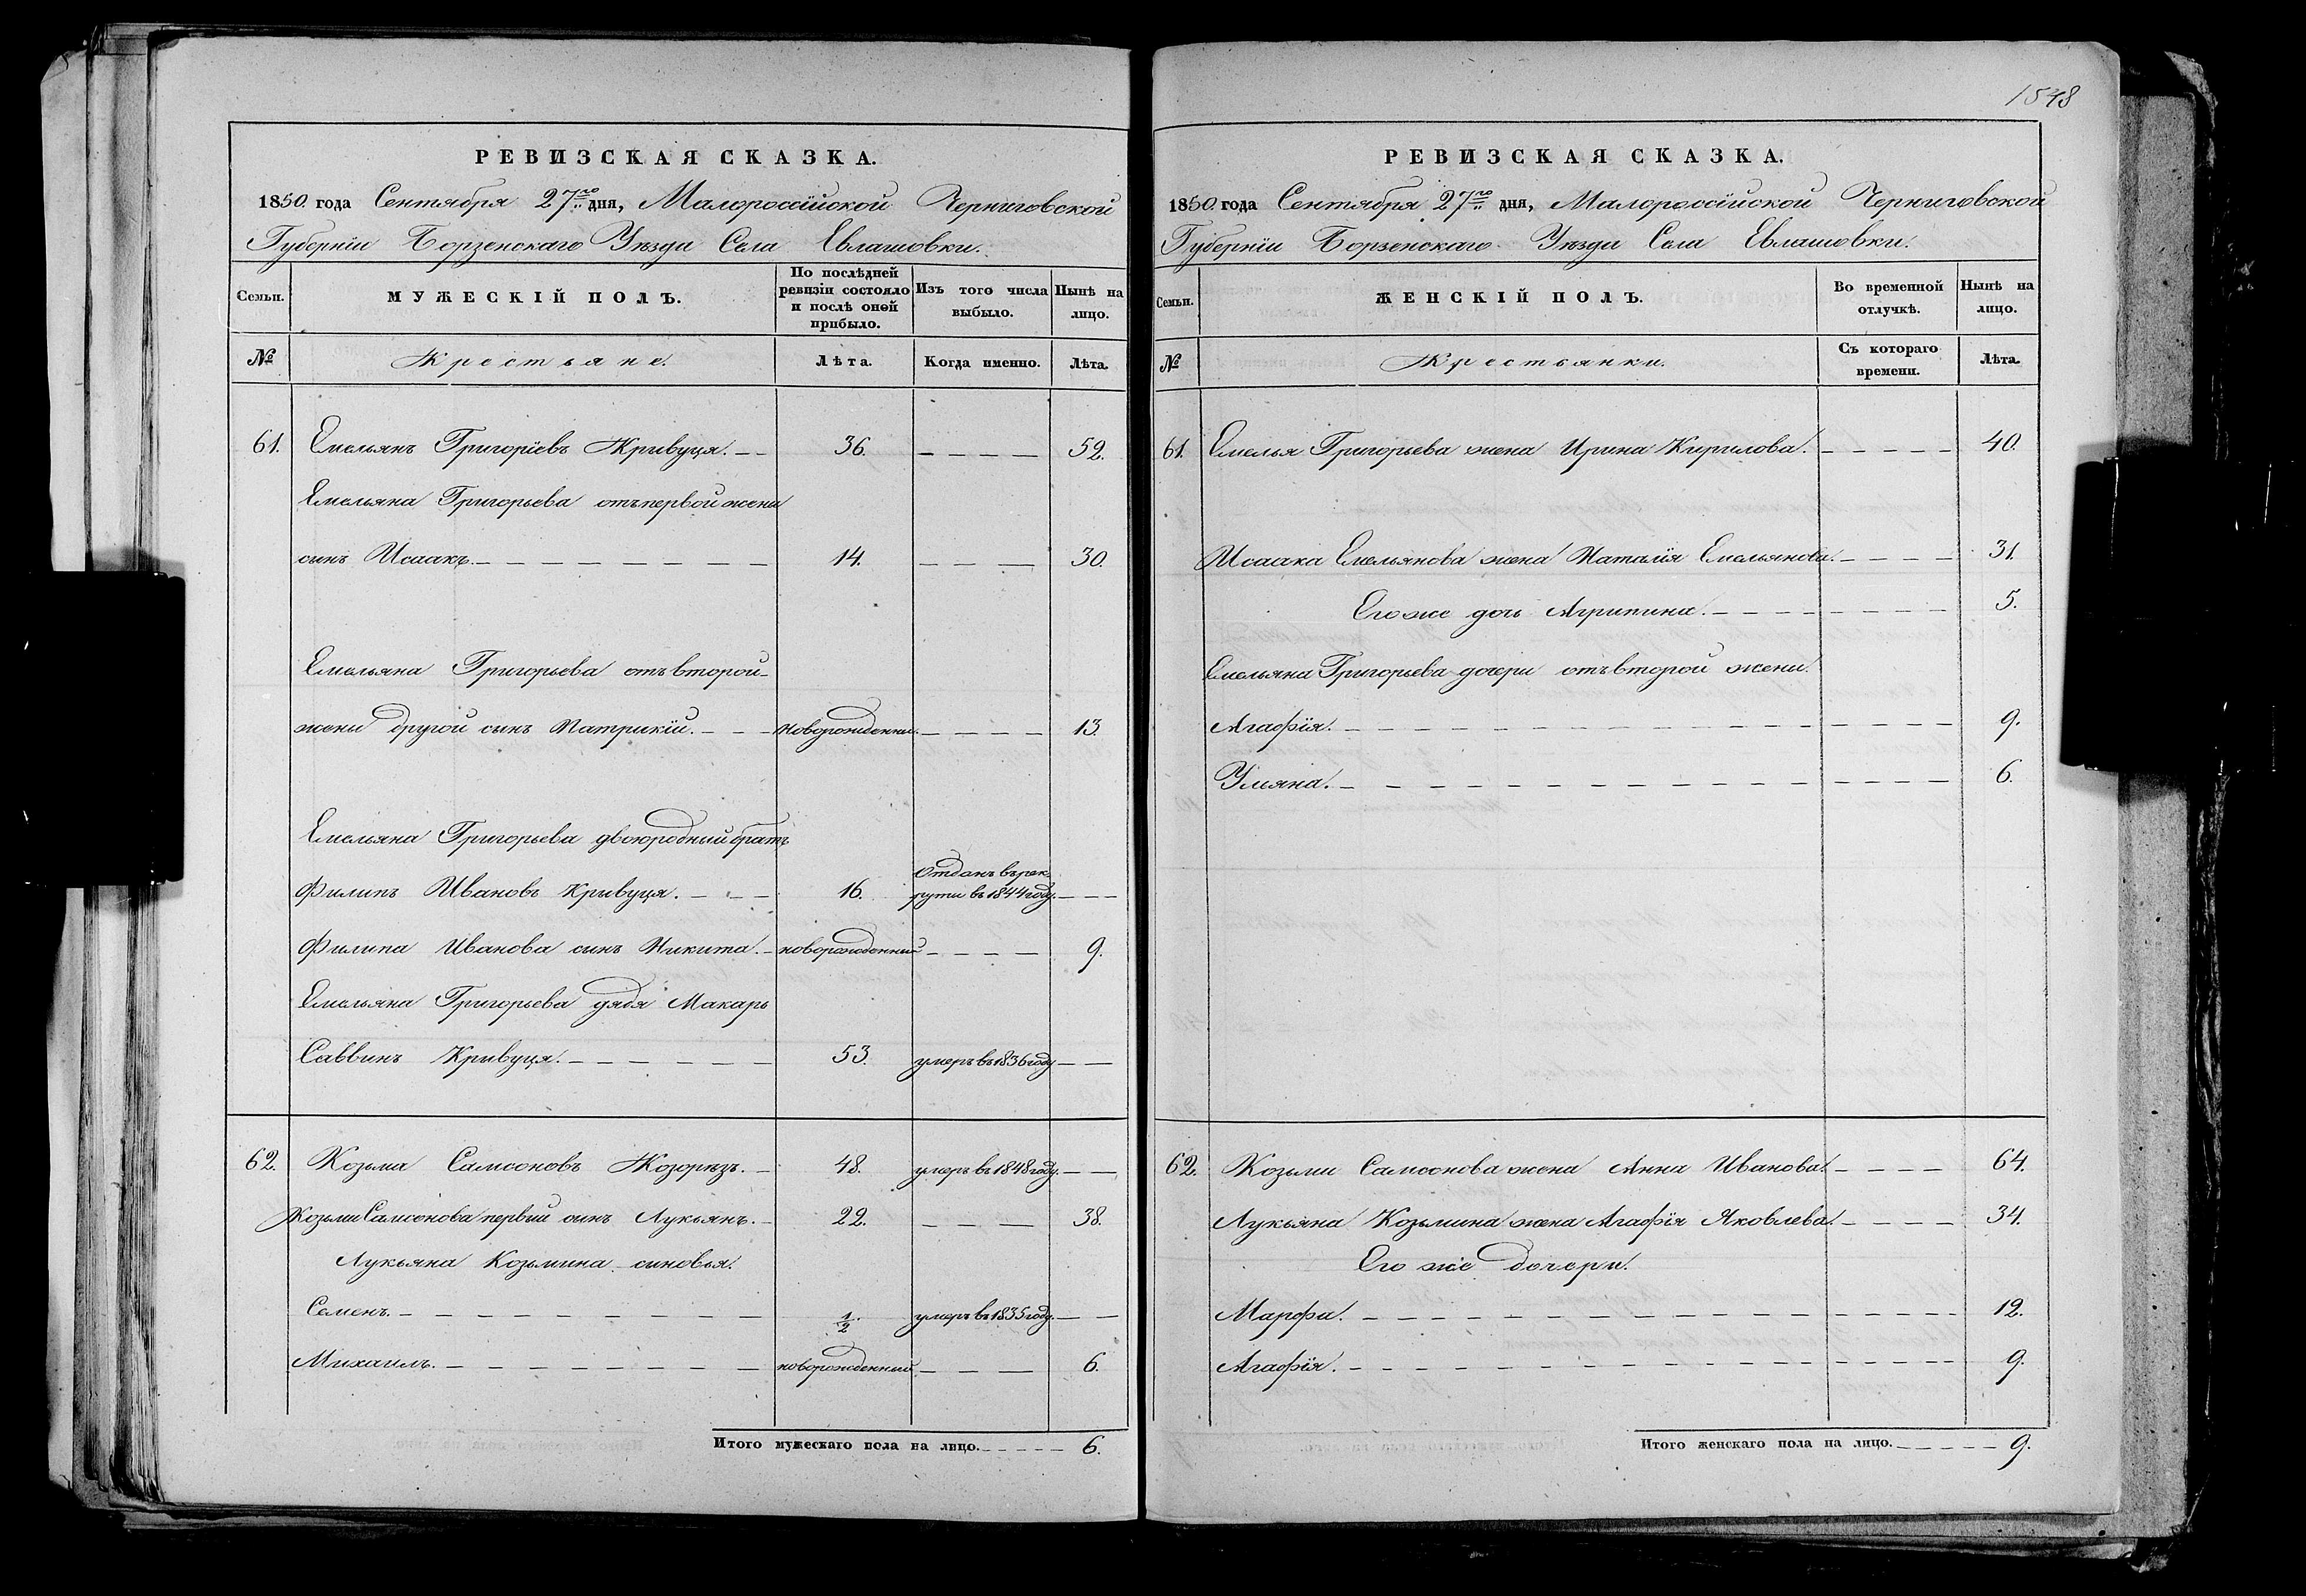 РЕВИЗСКАЯ СКАЗКА.
1850. года Сентября 27го дня, Малороссійской Черниговской
Губерніи Борзенскаго Уѣзда Села Евлашовки.
Семьи. МУЖЕСКІЙ ПОЛЪ. По послѣдней ревизіи состояло и послѣ оной прибыло. Изъ того числа выбыло. Нынѣ на лицо.
№ Крестьяне. Лѣта. Когда именно. Лѣта.
61. Емельянъ Григоріевъ Кривуця. — — 36. — — — — 52.
Емельяна Григорьева отъ первой жены
сынъ Исаакъ. — — — — — — — — 14. — — — 30.
Емельяна Григорьева отъ второй
жены другой сынъ Патрикій. — — — новорожденны. — — — — 13.
Емельяна Григорьева двоюродный братъ
Отданъ в рек-
Филипъ Ивановъ Кривуця. — — — 16. руты въ 1844 году. — — —
Филипа Иванова сынъ Никита. — новорожденный — — — — 9.
Емельяна Григорьева дядя Макаръ
Саввинъ Кривуця. — — — — — — 53. умеръ въ 1836 году — —
62. Козьма Самсоновъ Козорѣзъ. — 48. умеръ въ 1848 году. — —
Козьми Самсонова первый сынъ Лукьянъ. — 22. — — — 38.
Лукьяна Козьмина сыновья.
Семенъ. — — — — — — — — — 1/2. умеръ въ 1835 году. — —
Михаилъ. — — — — — — — — новорожденный — — — 6.
Итого мужескаго пола на лицо. — — — — — 6.
1548
РЕВИЗСКАЯ СКАЗКА.
1850. года Сентября 27го дня, Малороссійской Черниговской
Губерніи Борзенскаго Уѣзда Села Евлашовки.
Семьи. ЖЕНСКІЙ ПОЛЪ. Во временной отлучкѣ. Нынѣ на лицо.
№ Крестьянки. Съ котораго времени. Лѣта.
61. Емелья Григорьева жена Ирина Кирилова. — — — — — 40.
Исаака Емельянова жена Наталія Емельянова. — — — — 31.
Его же дочь Агрипина. — — — — — — — — 5.
Емельяна Григорьева дочери отъ второй жены.
Агафія. — — — — — — — — — — — — — — 9.
Уляна. — — — — — — — — — — — — — — 6.
62. Козьми Самсонова жена Анна Иванова. — — — — 64.
Лукьяна Козьмина жена Агафія Яковлева. — — — — 34.
Его же дочери.
Марфа. — — — — — — — — — — — — — — 12.
Агафія. — — — — — — — — — — — — — — 9.
Итого женскаго пола на лицо. — — — — — 9.